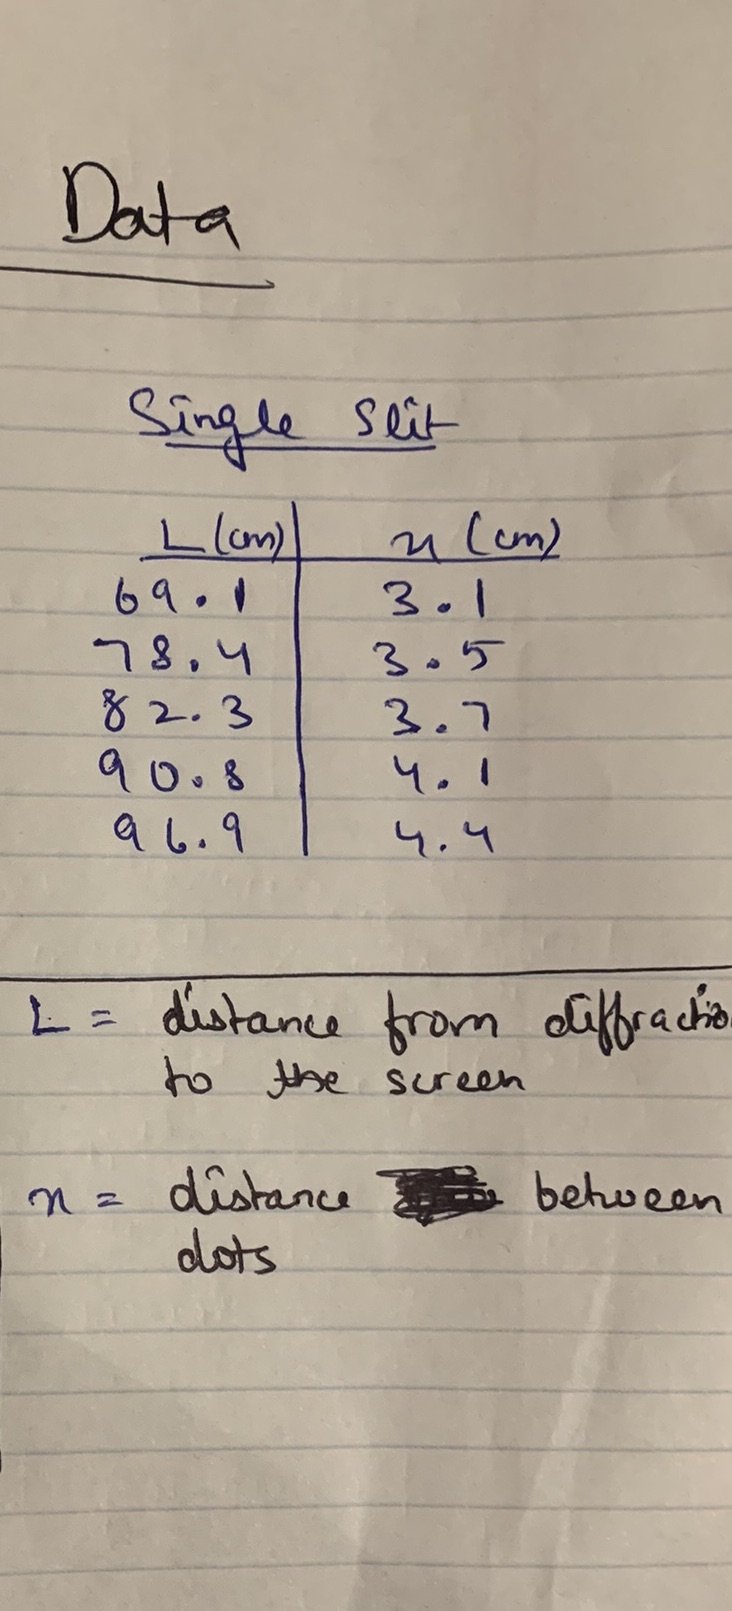 Data
Single Slit
L (cm) x (cm)
69.1 3.1
78.4 3.5
82.3 3.7
90.8 4.1
96.9 4.4
L = distance from diffractio
to the screen
x = distance between
dots